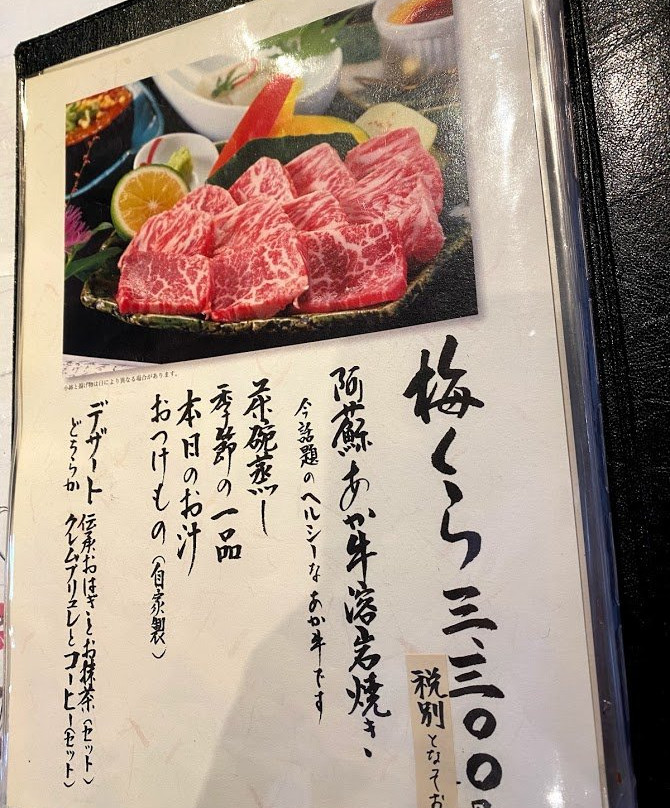 梅くら 三、三〇〇円
税別となってお
阿蘇あか牛溶岩焼き、
今話題のヘルシーなあか牛です
茶碗蒸し
季節の一品
本日のお汁
おつけもの(自家製)
デザート
どちらか
伝承おはぎとお抹茶(セット)
クレムブリュレとコーヒー(セット)
小鉢と揚げ物は日により異なる場合があります。